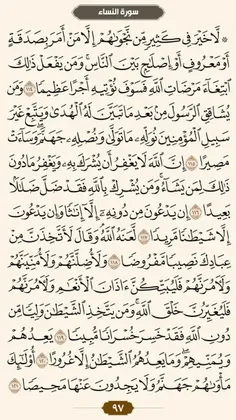 سورة النساء
۞ لَّا خَيْرَ فِي كَثِيرٍ مِّن نَّجْوَىٰهُمْ إِلَّا مَنْ أَمَرَ بِصَدَقَةٍ
أَوْ مَعْرُوفٍ أَوْ إِصْلَٰحٍۭ بَيْنَ ٱلنَّاسِ ۚ وَمَن يَفْعَلْ ذَٰلِكَ
ٱبْتِغَآءَ مَرْضَاتِ ٱللَّهِ فَسَوْفَ نُؤْتِيهِ أَجْرًا عَظِيمًا ١١٤ وَمَن
يُشَاقِقِ ٱلرَّسُولَ مِنۢ بَعْدِ مَا تَبَيَّنَ لَهُ ٱلْهُدَىٰ وَيَتَّبِعْ غَيْرَ
سَبِيلِ ٱلْمُؤْمِنِينَ نُوَلِّهِۦ مَا تَوَلَّىٰ وَنُصْلِهِۦ جَهَنَّمَ ۖ وَسَآءَتْ
مَصِيرًا ١١٥ إِنَّ ٱللَّهَ لَا يَغْفِرُ أَن يُشْرَكَ بِهِۦ وَيَغْفِرُ مَا دُونَ
ذَٰلِكَ لِمَن يَشَآءُ ۚ وَمَن يُشْرِكْ بِٱللَّهِ فَقَدْ ضَلَّ ضَلَٰلًۢا
بَعِيدًا ١١٦ إِن يَدْعُونَ مِن دُونِهِۦٓ إِلَّآ إِنَٰثًا وَإِن يَدْعُونَ
إِلَّا شَيْطَٰنًا مَّرِيدًا ١١٧ لَّعَنَهُ ٱللَّهُ ۘ وَقَالَ لَأَتَّخِذَنَّ مِنْ
عِبَادِكَ نَصِيبًا مَّفْرُوضًا ١١٨ وَلَأُضِلَّنَّهُمْ وَلَأُمَنِّيَنَّهُمْ
وَلَءَامُرَنَّهُمْ فَلَيُبَتِّكُنَّ ءَاذَانَ ٱلْأَنْعَٰمِ وَلَءَامُرَنَّهُمْ
فَلَيُغَيِّرُنَّ خَلْقَ ٱللَّهِ ۚ وَمَن يَتَّخِذِ ٱلشَّيْطَٰنَ وَلِيًّا مِّن
دُونِ ٱللَّهِ فَقَدْ خَسِرَ خُسْرَانًا مُّبِينًا ١١٩ يَعِدُهُمْ
وَيُمَنِّيهِمْ ۖ وَمَا يَعِدُهُمُ ٱلشَّيْطَٰنُ إِلَّا غُرُورًا ١٢٠ أُو۟لَٰٓئِكَ
مَأْوَىٰهُمْ جَهَنَّمُ وَلَا يَجِدُونَ عَنْهَا مَحِيصًا ١٢١
٩٧